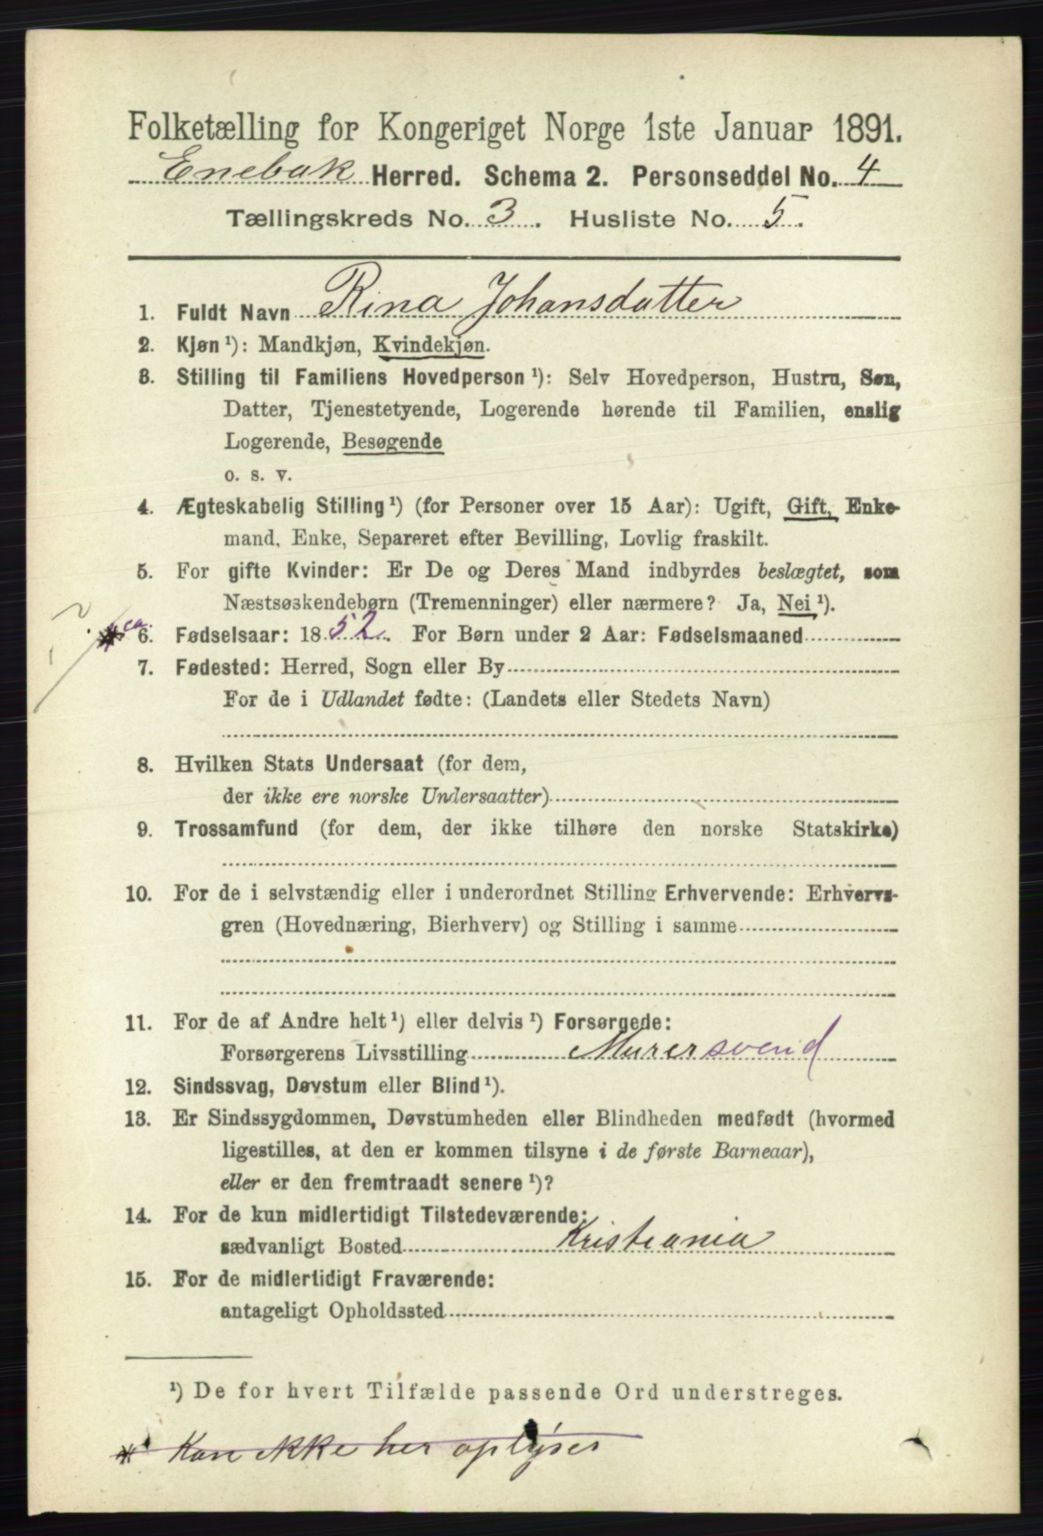 Folketælling for Kongeriget Norge 1ste Januar 1891.
Enebak Herred. Schema 2. Personseddel No. 4
Tællingskreds No. 3. Husliste No. 5.
1. Fuldt Navn Rina Johansdatter
2. Kjøn ¹): Mandkjøn, Kvindekjøn.
3. Stilling til Familiens Hovedperson ¹): Selv Hovedperson, Hustru, Søn,
Datter, Tjenestetyende, Logerende hørende til Familien, enslig
Logerende, Besøgende
o. s. v.
4. Ægteskabelig Stilling ¹) (for Personer over 15 Aar): Ugift, Gift, Enke-
mand, Enke, Separeret efter Bevilling, Lovlig fraskilt.
5. For gifte Kvinder: Er De og Deres Mand indbyrdes beslægtet, som
Næstsøskendebørn (Tremenninger) eller nærmere? Ja, Nei ¹).
? * ca. 6. Fødselsaar: 1852. For Børn under 2 Aar: Fødselsmaaned
7. Fødested: Herred, Sogn eller By
For de i Udlandet fødte: (Landets eller Stedets Navn)
8. Hvilken Stats Undersaat (for dem,
der ikke ere norske Undersaatter)
9. Trossamfund (for dem, der ikke tilhøre den norske Statskirke)
10. For de i selvstændig eller i underordnet Stilling Erhvervende: Erhvervs-
gren (Hovednæring, Bierhverv) og Stilling i samme
11. For de af Andre helt ¹) eller delvis ¹) Forsørgede:
Forsørgerens Livsstilling Murersvend
12. Sindssvag, Døvstum eller Blind ¹).
13. Er Sindssygdommen, Døvstumheden eller Blindheden medfødt (hvormed
ligestilles, at den er kommen tilsyne i de første Barneaar),
eller er den fremtraadt senere ¹)?
14. For de kun midlertidigt Tilstedeværende:
sædvanligt Bosted Kristiania
15. For de midlertidigt Fraværende:
antageligt Opholdssted
¹) De for hvert Tilfælde passende Ord understreges.
* Kan ikke her oplyses